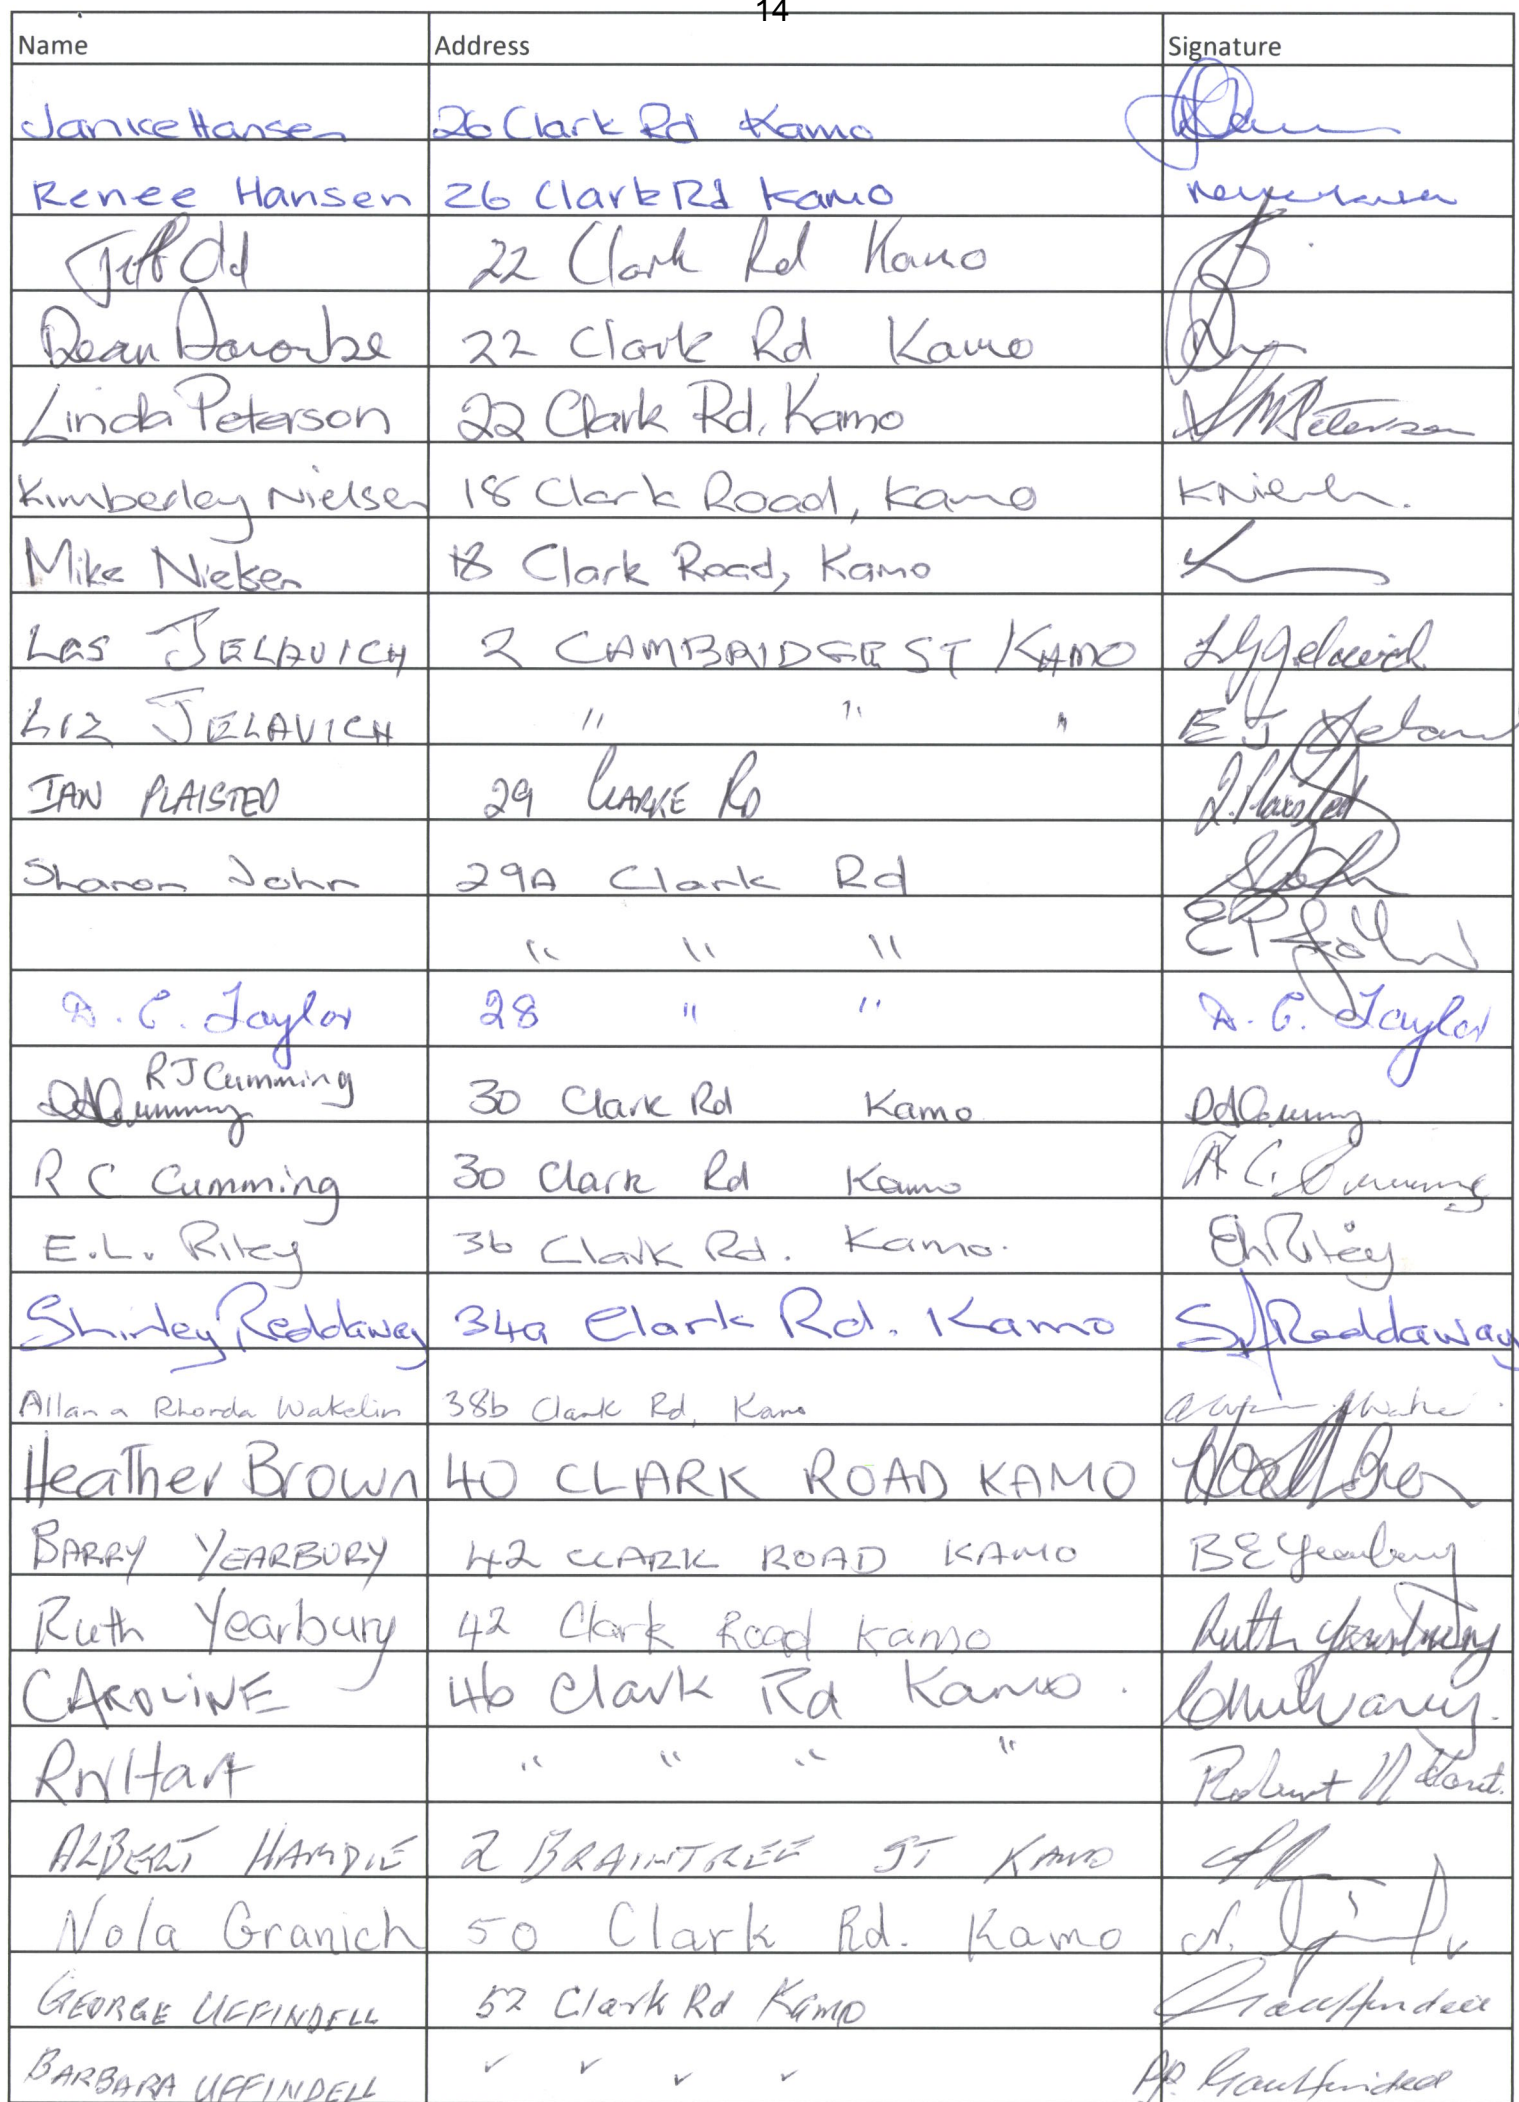 14
Name Address Signature
Janice Hansen 26 Clark Rd Kamo
Renee Hansen 26 Clark Rd Kamo
22 Clark Rd Kamo
Dean 22 Clark Rd Kamo
Linda Peterson 22 Clark Rd, Kamo
Kimberley Nielsen 18 Clark Road, Kamo
Mike Nielsen 18 Clark Road, Kamo
Les JELAVICH 2 CAMBRIDGE ST KAMO
LIZ JELAVICH " " " E J
IAN PLAISTED 29 CLARKE RD
Sharon John 29A Clark Rd
" " "
D. C. Taylor 28 " " D. C. Taylor
RJ Cumming
30 Clark Rd Kamo
R C Cumming 30 Clark Rd Kamo
E.L. Riley 36 Clark Rd. Kamo. Riley
Shirley Reddaway 34a Clark Rd. Kamo Reddaway
Allan a Rhonda Wakelin 38b Clark Rd, Kamo
Heather Brown 40 CLARK ROAD KAMO
BARRY YEARBURY 42 CLARK ROAD KAMO B E Yearbury
Ruth Yearbury 42 Clark Road Kamo Ruth Yearbury
CAROLINE 46 Clark Rd Kamo.
Hart " " " " Robert N Hart.
ALBERT HARDIE 2 BRAINTREE ST KAMO
Nola Granich 50 Clark Rd. Kamo N.
GEORGE UFFINDELL 52 Clark Rd Kamo
BARBARA UFFINDELL pp.